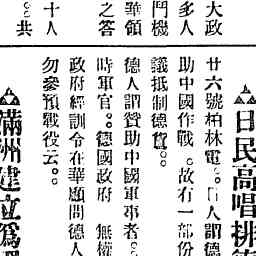 大政
多人
門機
華領
之答
十人
。。共
▲日民高唱排
廿六號柏林電。。日人謂德
助中國作戰。故有一部份
議抵制德貨。。
德人謂贊助中國軍事者。。
時軍官。。德國政府 無權
政府經訓令在華顧問德人
勿參預戰役云。。
▲滿洲建立爲